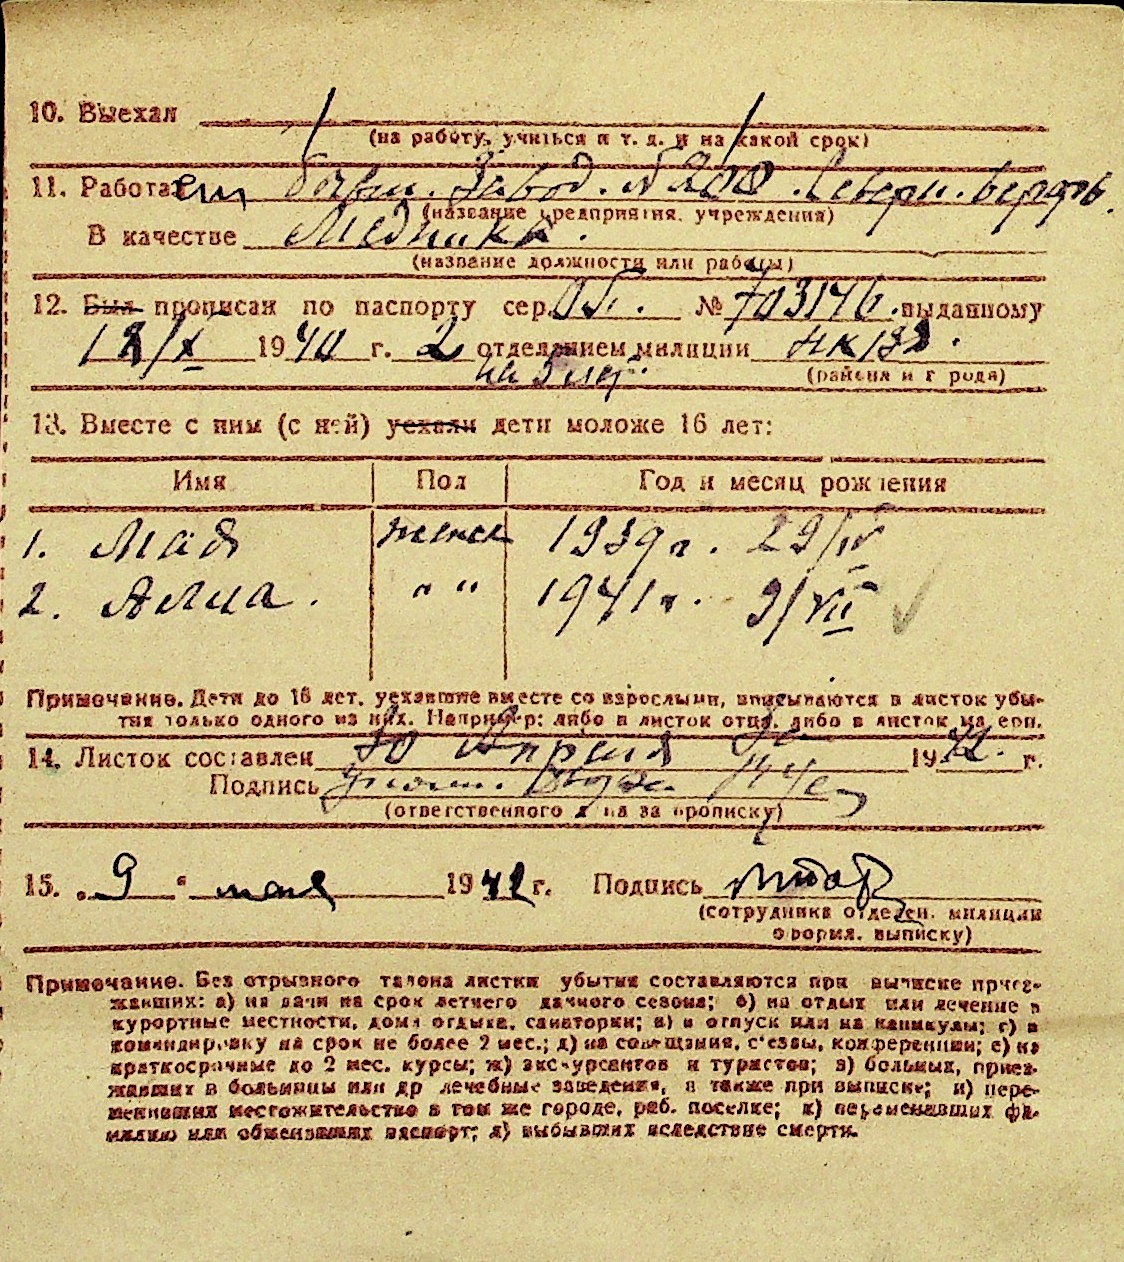 10. Выехал
(на работу, учиться и т. д. и на какой срок)
11. Работает бывш. Завод. № 200. Северн. верфь.
(название предприятия, учреждения)
В качестве Медника.
(название должности или работы)
12. Был прописан по паспорту сер. № 703146. выданному
1940 г. 2 отделением милиции
на 5 лет. (района и города)
13. Вместе с ним (с ней) уехали дети моложе 16 лет:
Имя Пол Год и месяц рождения
1. Мая женск 1939 г. 29/IV
2. Алла. " " 1941 г. 9/VII
Примечание. Дети до 16 лет, уехавшие вместе со взрослыми, вписываются в листок убы-
тия только одного из них. Например: либо в листок отца, либо в листок матери.
14. Листок составлен 30 Апреля 1942. г.
Подпись
(ответственного лица за прописку)
15. „9" мая 1942 г. Подпись
(сотрудника отделен. милиции
оформл. выписку)
Примечание. Без отрывного талона листки убытия составляются при выписке приез-
жавших: а) на дачи на срок летнего дачного сезона; б) на отдых или лечение в
курортные местности, дома отдыха, санатории; в) в отпуск или на каникулы; г) в
командировку на срок не более 2 мес.; д) на совещания, съезды, конференции; е) на
краткосрочные до 2 мес. курсы; ж) экскурсантов и туристов; з) больных, приез-
жавших в больницы или др лечебные заведения, а также при выписке; и) пере-
менивших местожительство в том же городе, раб. поселке; к) переменивших фа-
милию или обменявших паспорт; л) выбывших вследствие смерти.